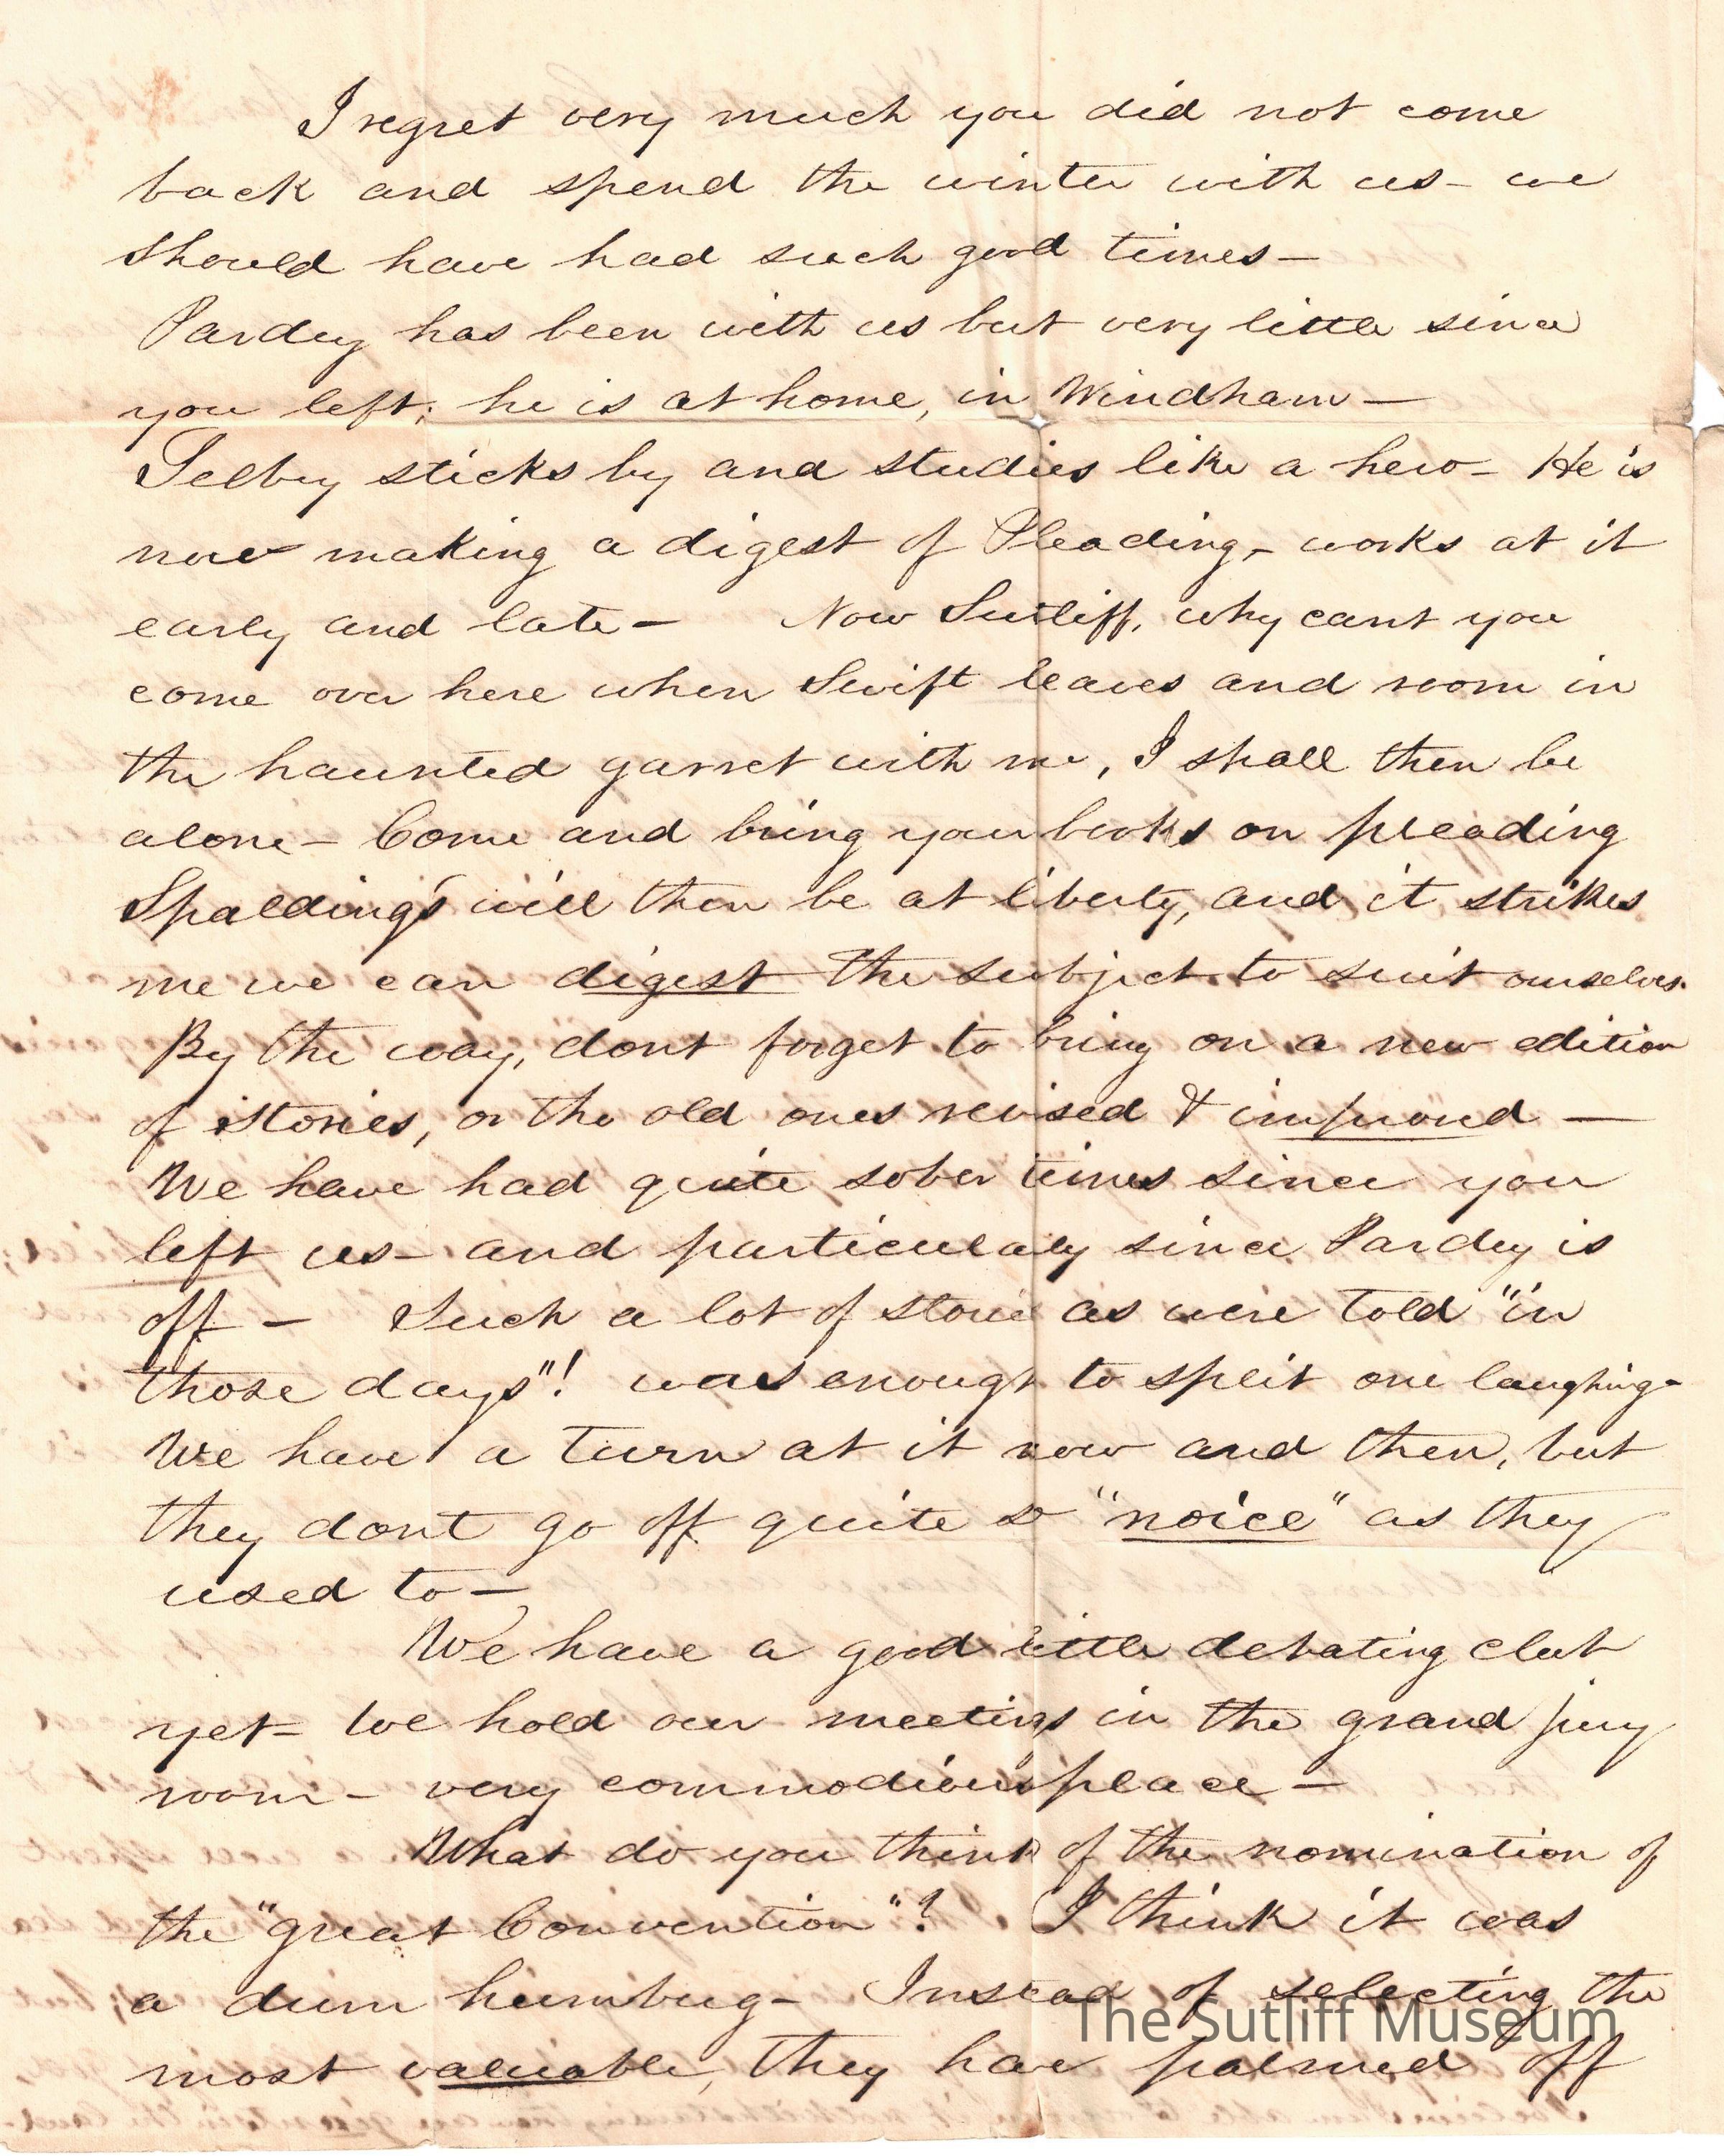 I regret very much you did not come
back and spend the winter with us – we
should have had such good times –
Pardey has been with us but very little since
you left; he is at home, in Windham –
Selby sticks by and studies like a hero – He is
now making a digest of Pleading, – works at it
early and late – Now Sutliff, why cant you
come over here when Swift leaves and room in
the haunted garret with me, I shall then be
alone – Come and bring your books on pleading
Spalding's will then be at liberty, and it strikes
me we can digest the subject to suit ourselves.
By the way, dont forget to bring on a new edition
of stories, or the old ones revised & improved –
We have had quite sober times since you
left us – and particularly since Pardey is
off – Such a lot of stories as were told "in
those days"! was enough to split one laughing –
We have a turn at it now and then, but
they dont go off quite so "noice" as they
used to –
We have a good little debating club
yet – We hold our meetings in the grand jury
room – very commodious place –
What do you think of the nomination of
the "great Convention"? I think it was
a dum humbug – Instead of selecting the
most valuable, they have palmed off
The Sutliff Museum